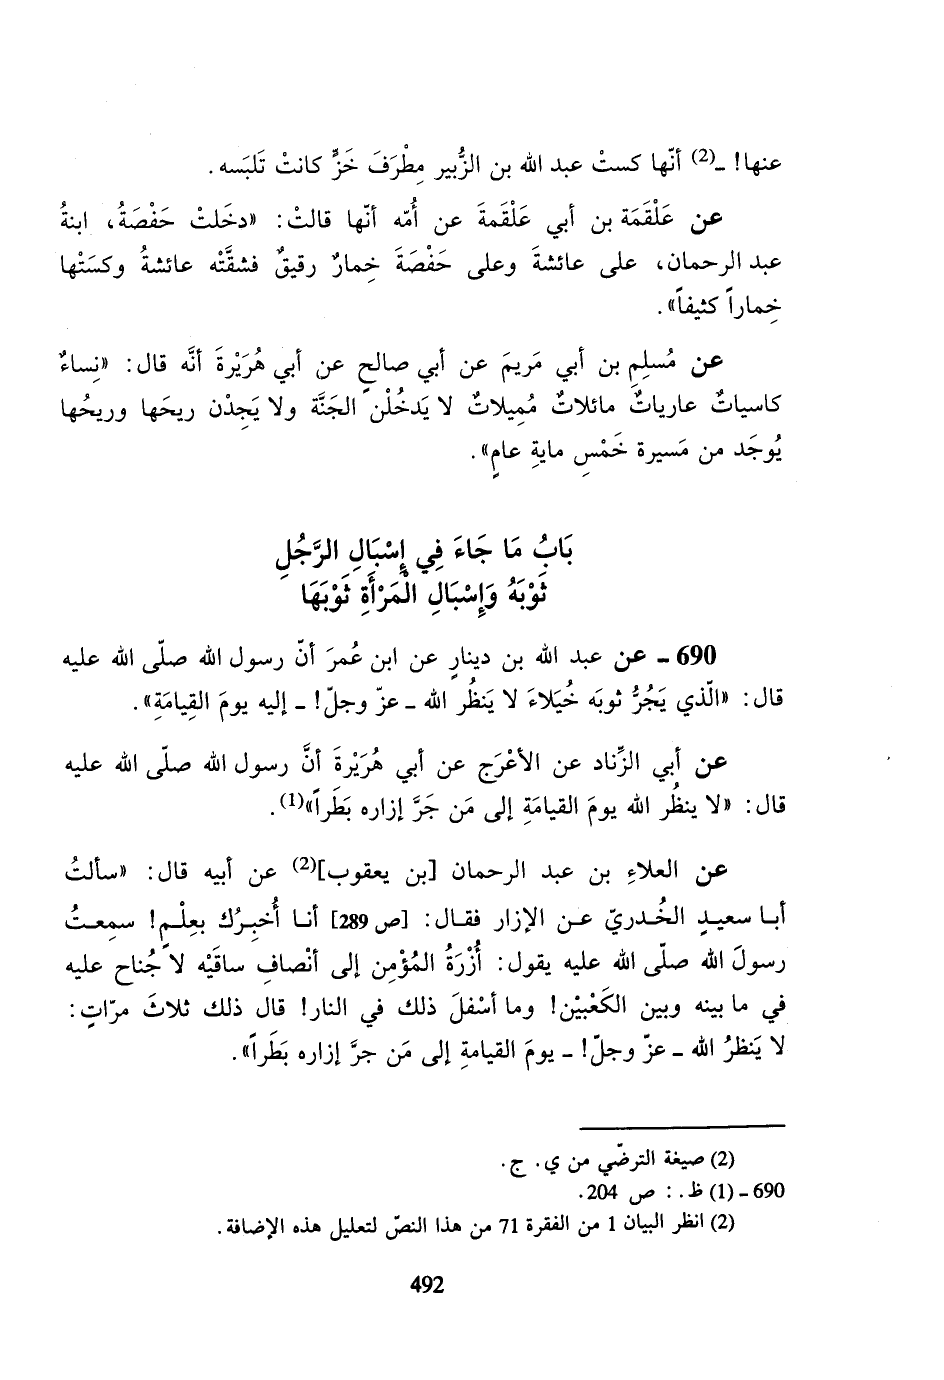 عنها! ـ(2) أنّها كستْ عبد الله بن الزُّبير مِطْرَفَ خَزٍّ كانتْ تَلبَسه .
عن عَلْقَمَة بن أبي عَلْقَمةَ عن أُمّه أنّها قالتْ : «دخَلتْ حَفْصَةُ، ابنةُ
عبد الرحمان، على عائشةَ وعلى حَفْصَةَ خِمارٌ رقيقٌ فشقَّتْه عائشةُ وكسَتْها
خِماراً كثيفاً» .
عن مُسلِمِ بن أبي مَريمَ عن أبي صالحٍ عن أبي هُرَيْرةَ أنَّه قال : «نِساءٌ
كاسياتٌ عارياتٌ مائلاتٌ مُمِيلاتٌ لا يَدخُلْن الجَنَّة ولا يَجِدْن ريحَها وريحُها
يُوجَد من مَسيرة خَمْسِ مايةِ عامٍ» .
بَابُ مَا جَاءَ فِي إِسْبَالِ الرَّجُلِ
ثَوْبَهُ وَإِسْبَالِ الْمَرْأَةِ ثَوْبَهَا
690 ـ عن عبد الله بن دينارٍ عن ابن عُمرَ أنّ رسول الله صلّى الله عليه
قال : «الّذي يَجُرُّ ثوبَه خُيَلاءَ لا يَنظُر الله ـ عزّ وجلّ! ـ إليه يومَ القِيامَةِ» .
عن أبي الزِّناد عن الأعْرَج عن أبي هُرَيْرةَ أنَّ رسول الله صلّى الله عليه
قال : «لا ينظُر الله يومَ القيامَةِ إلى مَن جَرَّ إزاره بَطَراً»(1) .
عن العلاءِ بن عبد الرحمان [بن يعقوب](2) عن أبيه قال : «سألتُ
أبا سعيدٍ الخُدريّ عن الإزار فقال : [ص 289] أنا أُخبِرُك بعِلْمٍ! سمِعتُ
رسولَ الله صلّى الله عليه يقول : أُزْرَةُ المُؤْمِن إلى أنْصافِ ساقَيْه لا جُناح عليه
في ما بينه وبين الكَعْبَيْن! وما أسْفلَ ذلك في النار! قال ذلك ثلاثَ مرّاتٍ :
لا يَنظرُ الله ـ عزّ وجلّ! ـ يومَ القيامةِ إلى مَن جرَّ إزاره بَطَراً» .
(2) صيغة الترضّي من ي . ج .
690 ـ (1) ظ . : ص 204 .
(2) انظر البيان 1 من الفقرة 71 من هذا النصّ لتعليل هذه الإضافة .
492